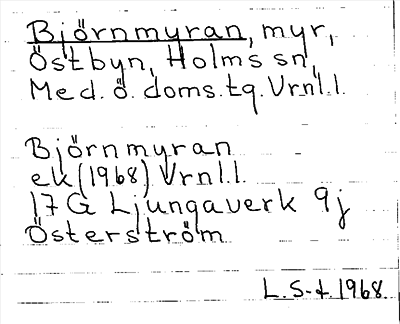 Björnmyran, myr,
Östbyn, Holms sn,
Med. ö. doms.tg. Vrnl.l.
Björnmyran
ek (1968) Vrnl.l.
17 G Ljungaverk 9j
Österström
L. S-t. 1968.